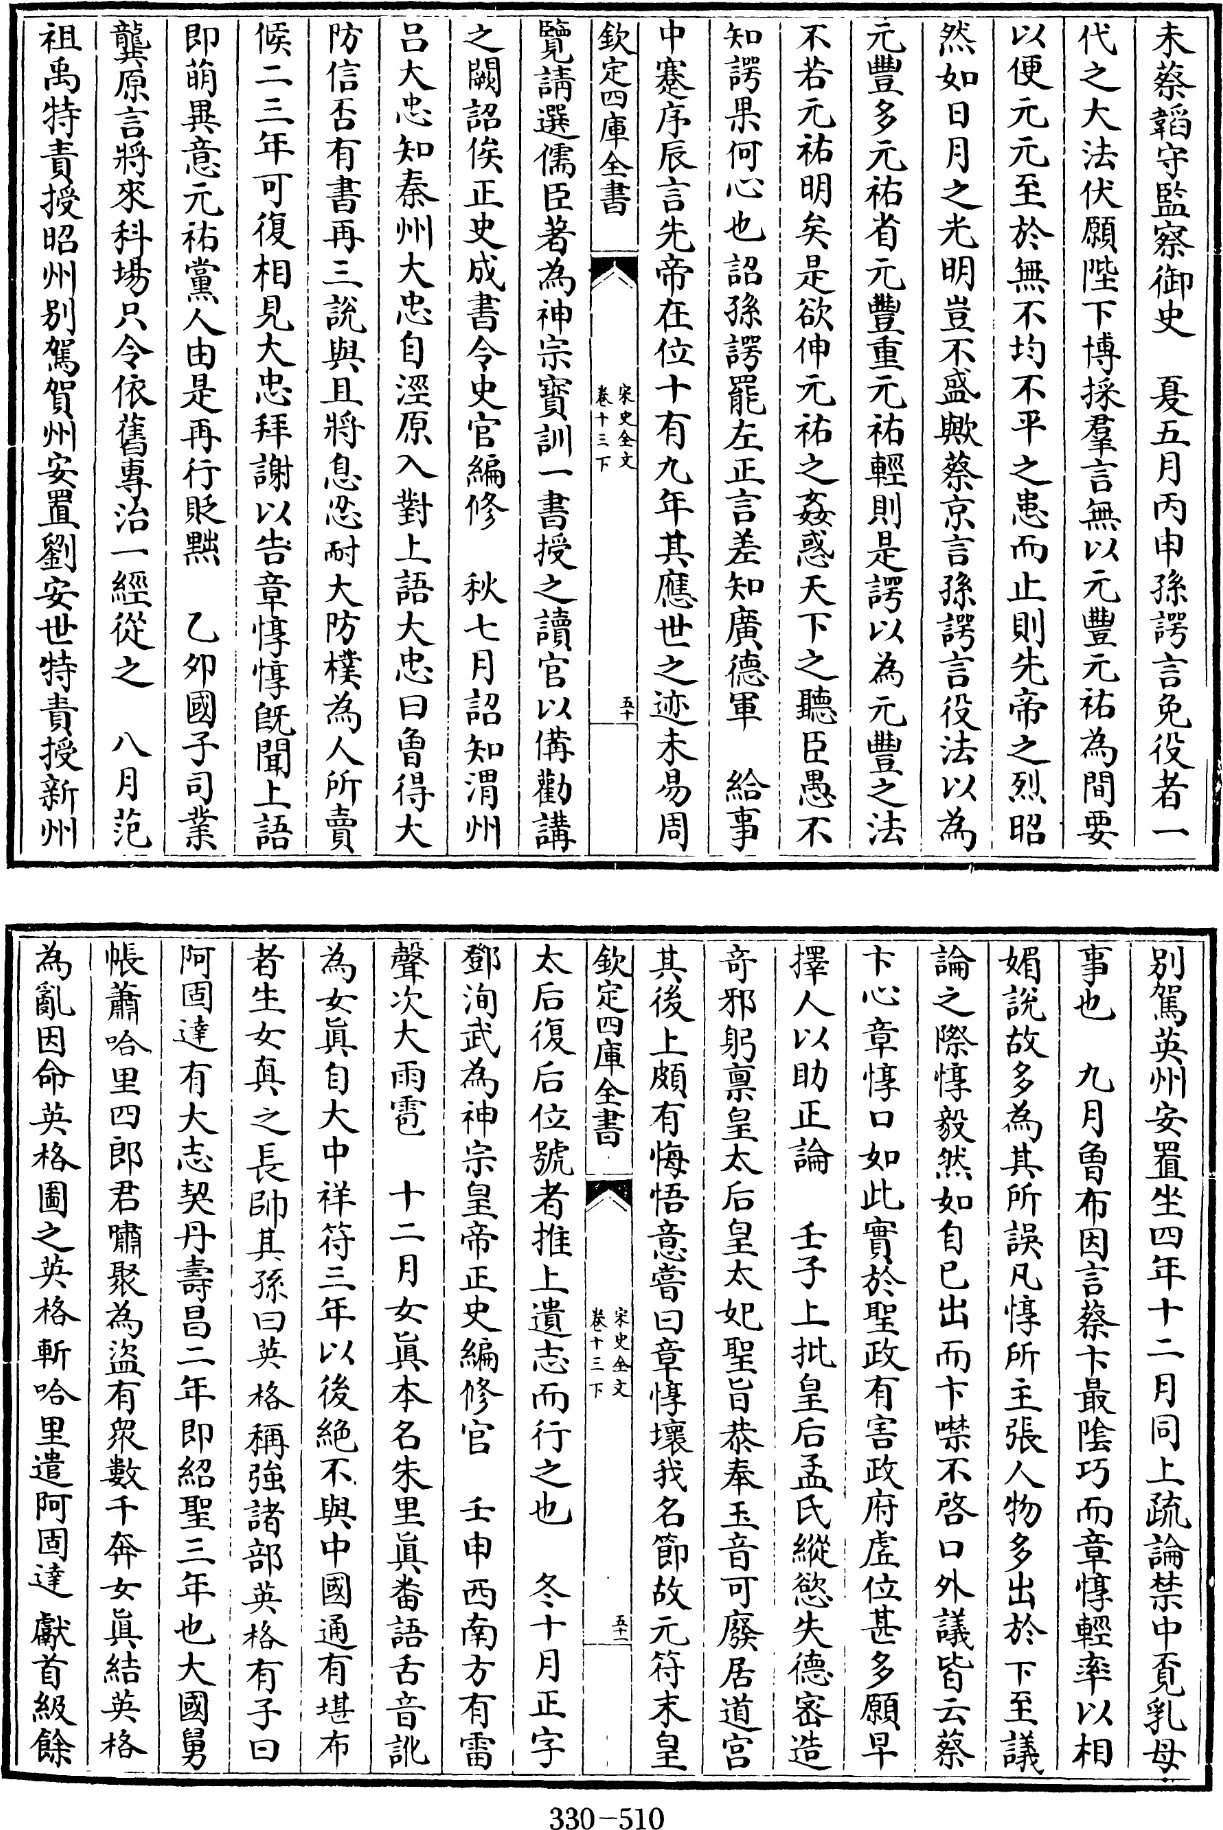 未蔡蹈守監察御史　夏五月丙申孫諤言免役者一
代之大法伏願陛下博採羣言無以元豐元祐為間要
以便元元至於無不均不平之患而止則先帝之烈昭
然如日月之光明豈不盛歟蔡京言孫諤言役法以為
元豐多元祐省元豐重元祐輕則是諤以為元豐之法
不若元祐明矣是欲伸元祐之姦惑天下之聽臣愚不
知諤果何心也詔孫諤罷左正言差知廣德軍　給事
中蹇序辰言先帝在位十有九年其應世之迹未易周
欽定四庫全書
宋史全文
卷十三下
五十
覽請選儒臣著為神宗寶訓一書授之讀官以備勸講
之闕詔俟正史成書令史官編修　秋七月詔知渭州
呂大忠知秦州大忠自涇原入對上語大忠曰魯得大
防信否有書再三說與且將息忍耐大防樸為人所賣
候二三年可復相見大忠拜謝以告章惇惇既聞上語
即萌異意元祐黨人由是再行貶黜　乙卯國子司業
龔原言將來科場只令依舊專治一經從之　八月范
祖禹特責授昭州別駕賀州安置劉安世特責授新州
別駕英州安置坐四年十二月同上疏論禁中覓乳母
事也　九月魯布因言蔡卞最陰巧而章惇輕率以相
媚說故多為其所誤凡惇所主張人物多出於下至議
論之際惇毅然如自己出而卞噤不啓口外議皆云蔡
卞心章惇口如此實於聖政有害政府虛位甚多願早
擇人以助正論　壬子上批皇后孟氏縱慾失德密造
奇邪躬禀皇太后皇太妃聖旨恭奉玉音可廢居道宮
其後上頗有悔悟意嘗曰章惇壞我名節故元符末皇
欽定四庫全書
宋史全文
卷十三下
五十一
太后復后位號者推上遺志而行之也　冬十月正字
鄧洵武為神宗皇帝正史編修官　壬申西南方有雷
聲次大雨雹　十二月女眞本名朱里眞畨語舌音訛
為女眞自大中祥符三年以後絶不與中國通有堪布
者生女真之長帥其孫曰英格稱強諸部英格有子曰
阿固達有大志契丹壽昌二年即紹聖三年也大國舅
帳蕭哈里四郎君嘯聚為盜有衆數千奔女眞結英格
為亂因命英格圖之英格斬哈里遣阿固達獻首級餘
330-510